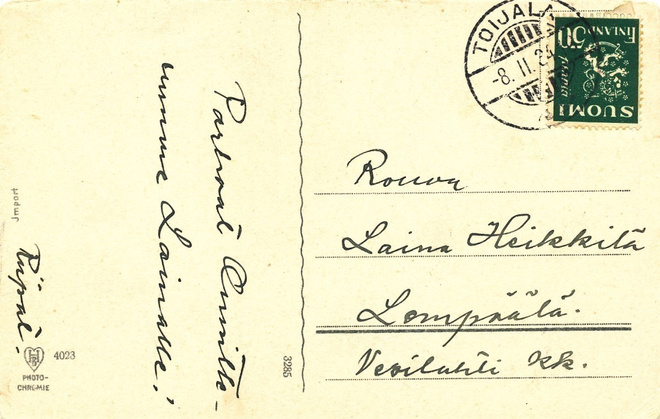 Parhvat Onnitte-
lumme Lainalle!
Riipat.
Jmport
4023
PHOTO-
CHROMIE
3285
TOIJALA
-8.II.34
50
FINLAND
SUOMI
Rouva
Laina Heikkilä
Lempäälä.
Vesilahti kk.